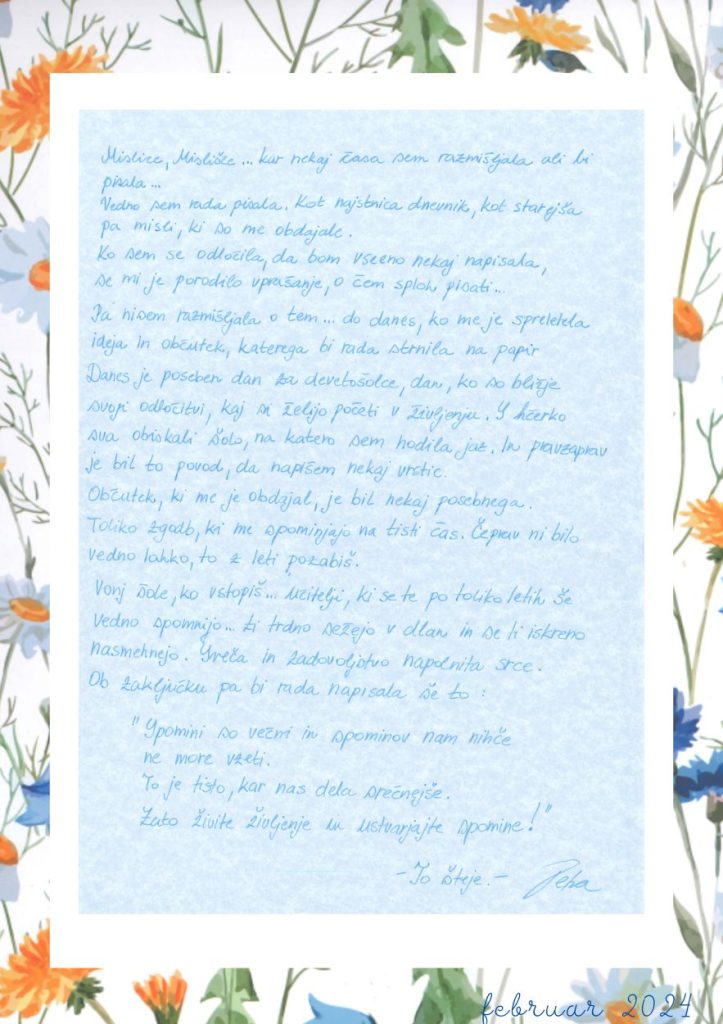 Mislice, Mislišče... kar nekaj časa sem razmišljala ali bi
pisala...
Vedno sem rada pisala. Kot najstnica dnevnik, kot starejša
pa misli, ki so me obdajale.
Ko sem se odločila, da bom vseeno nekaj napisala,
se mi je porodilo vprašanje, o čem sploh pisati...
Pa nisem razmišljala o tem... do danes, ko me je spreletela
ideja in občutek, katerega bi rada strnila na papir
Danes je poseben dan za devetošolce, dan, ko so bližje
svoji odločitvi, kaj si želijo početi v življenju. S hčerko
sva obiskali šolo, na katero sem hodila jaz. In pravzaprav
je bil to povod, da napišem nekaj vrstic.
Občutek, ki me je obdajal, je bil nekaj posebnega.
Toliko zgodb, ki me spominjajo na tisti čas. Čeprav ni bilo
vedno lahko, to z leti pozabiš.
Vonj šole, ko vstopiš... učitelji, ki se te po toliko letih še
vedno spomnijo... ti trdno sežejo v dlan in se ti iskreno
nasmehnejo. Sreča in zadovoljstvo napolnita srce.
Ob zaključku pa bi rada napisala še to:
"Spomini so večni in spominov nam nihče
ne more vzeti.
To je tisto, kar nas dela srečnejše.
Zato živite življenje in ustvarjajte spomine!"
- To šteje. - Petra
februar 2024